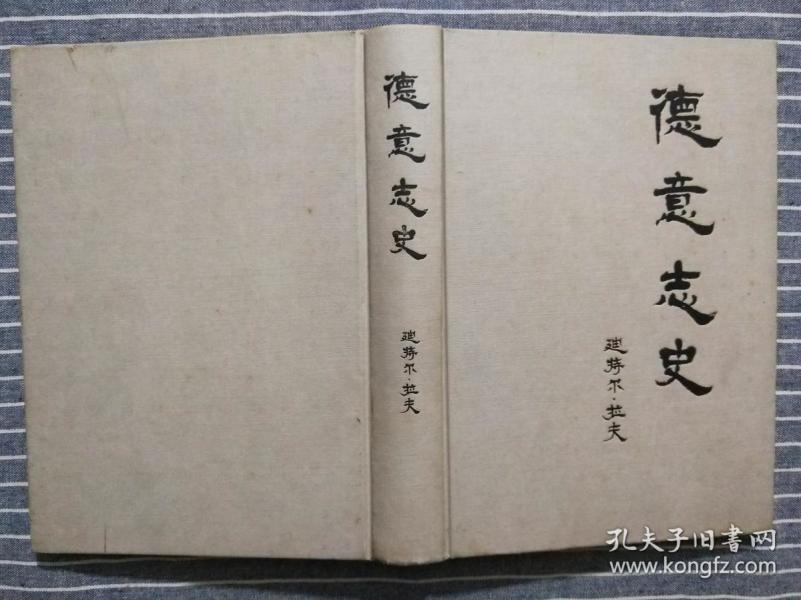 德意志史
迪特尔·拉夫
德意志史
迪特尔·拉夫
孔夫子旧書网
www.kongfz.com